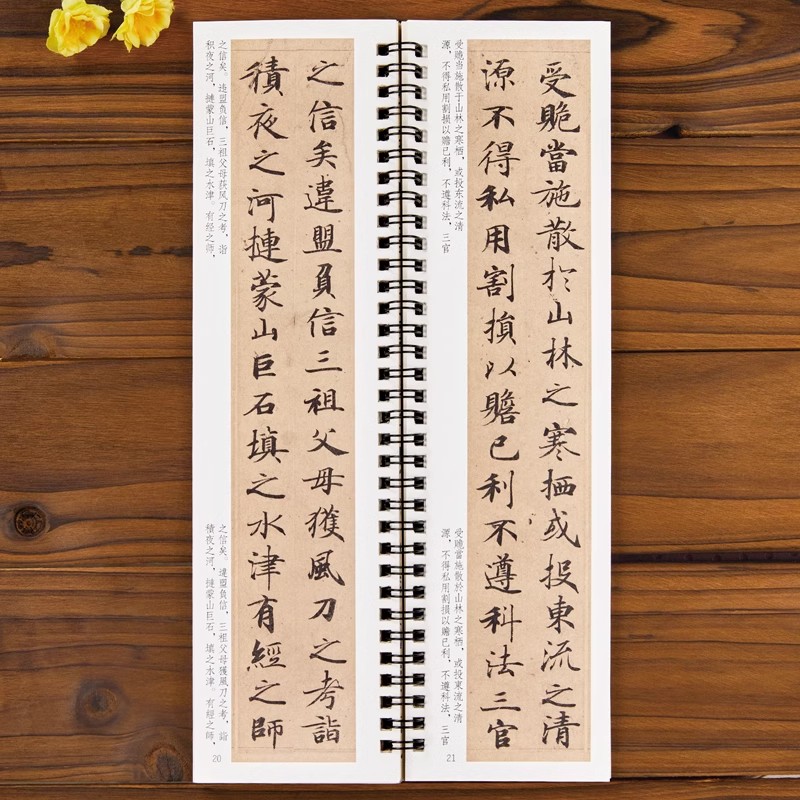 之信矣違盟負信三祖父母獲風刀之考詣
積夜之河摙蒙山巨石填之水津有經之師
之信矣。违盟负信，三祖父母获风刀之考，诣
积夜之河，摙蒙山巨石，填之水津。有经之师，
之信矣。違盟負信，三祖父母獲風刀之考，詣
積夜之河，摙蒙山巨石，填之水津。有經之師，
20
受貺當施散於山林之寒栖或投東流之清
源不得私用割損以贍己利不遵科法三官
受贶当施散于山林之寒栖，或投东流之清
源，不得私用割损以赡己利，不遵科法，三官
受貺當施散於山林之寒栖，或投東流之清
源，不得私用割損以贍己利，不遵科法，三官
21